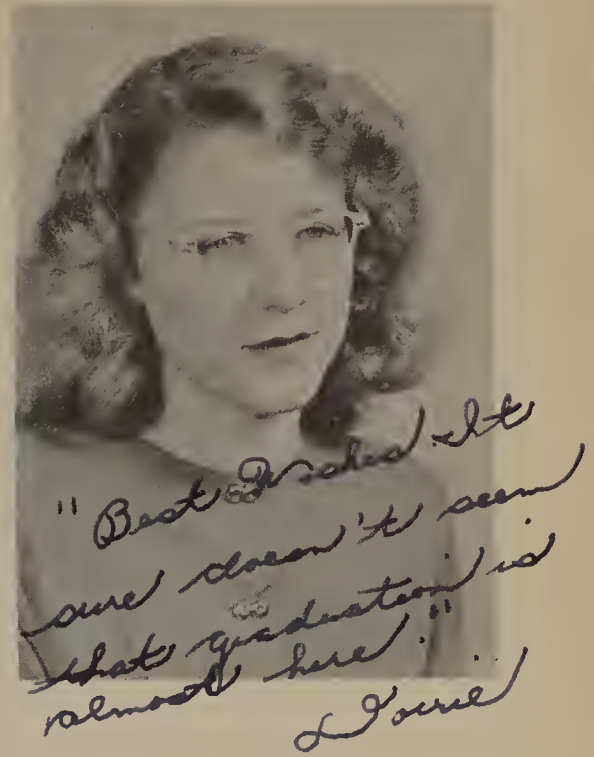 "Best Wishes. It
sure doesn't seem
that graduation is
almost here."